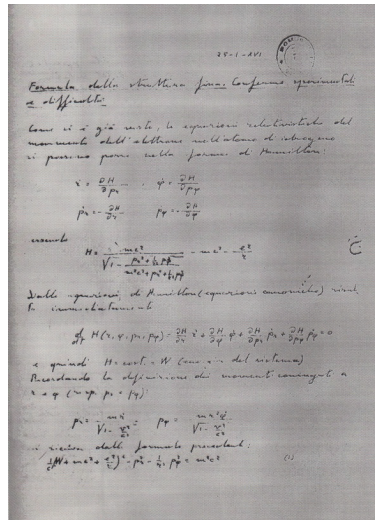 28-1-XVI
Formula della struttura fina. Conferme sperimentali
e difficoltà
Come si è già visto, le equazioni relativistiche del
movimento dell'elettrone nell'atomo di idrogeno
si possono porre nella forma di Hamilton:
ṙ = ∂H/∂pr , φ̇ = ∂H/∂pφ
ṗr = - ∂H/∂r ṗφ = - ∂H/∂φ
essendo
H = mc²/√(1 - (pr² + 1/r² pφ²)/(m²c² + pr² + 1/r² pφ²)) - mc² - e²/r
Dalle equazioni di Hamilton (equazioni canoniche) risul
ta immediatamente
d/dt H(r, φ, pr, pφ) = ∂H/∂r ṙ + ∂H/∂φ φ̇ + ∂H/∂pr ṗr + ∂H/∂pφ ṗφ = 0
e quindi H = cost = W ( del sistema)
Ricordando la definizione dei momenti coniugati a
r e φ (risp. pr e pφ):
pr = mṙ/√(1 - v²/c²) pφ = mr²φ̇/√(1 - v²/c²)
si ricava dalle formule precedenti:
1/c² (W + mc² + e²/r)² - pr² - 1/r² pφ² = m²c² (1)